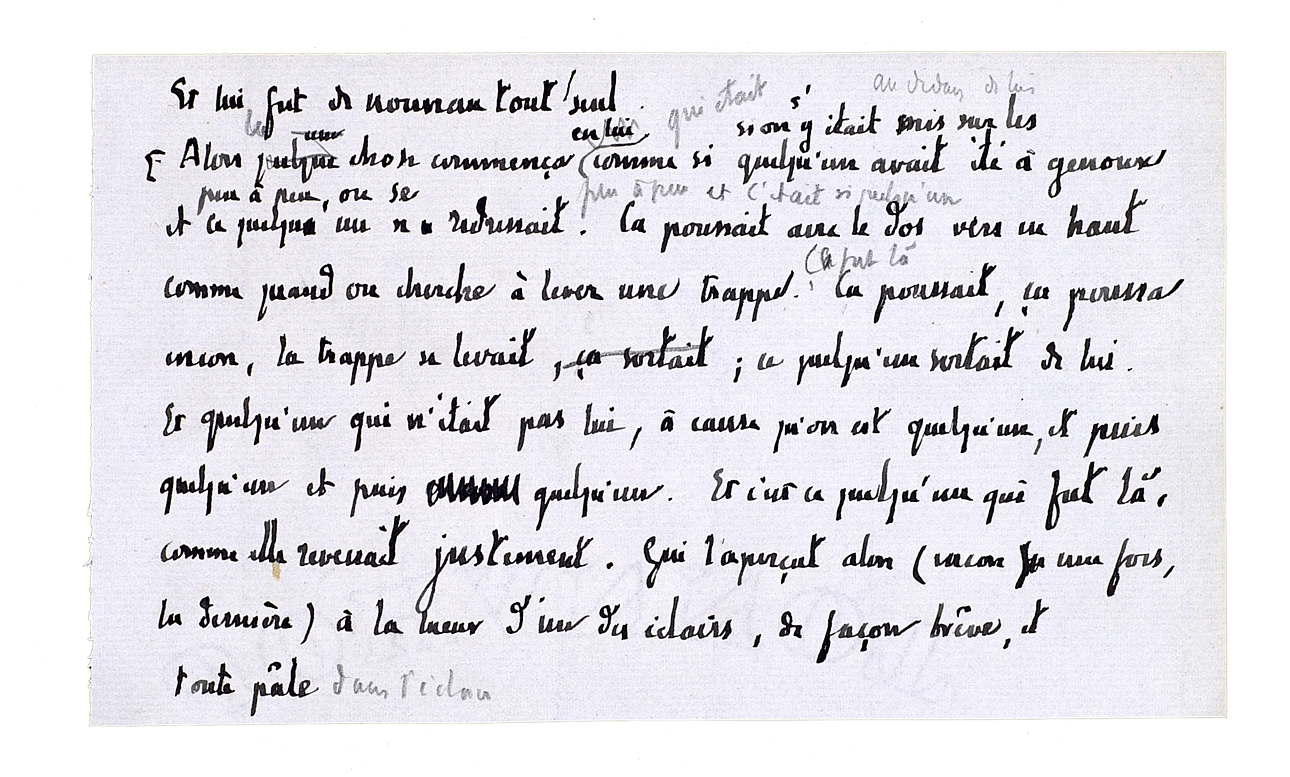 Et lui fut de nouveau tout seul.
qui était
s'
au dedans de lui
une
en lui
si on y était mis sur les
Alors quelque chose commença comme si quelqu'un avait été à genoux
peu à peu, ou se
peu à peu et c'était si quelqu'un
et ce quelqu'un se redressait. Ça poussait avec le dos vers en haut
Ce fut là
comme quand on cherche à lever une trappe. Ça poussait, ça poussa
encore, la trappe se levait, ça sortait ; ce quelqu'un sortait de lui.
Et quelqu'un qui n'était pas lui, à cause qu'on est quelqu'un, et puis
quelqu'un et puis quelqu'un. Et c'est ce quelqu'un qui fut là,
comme elle revenait justement. Qui l'aperçut alors (encore une fois,
la dernière) à la lueur d'un des éclairs, de façon brève, et
toute pâle dans l'éclair